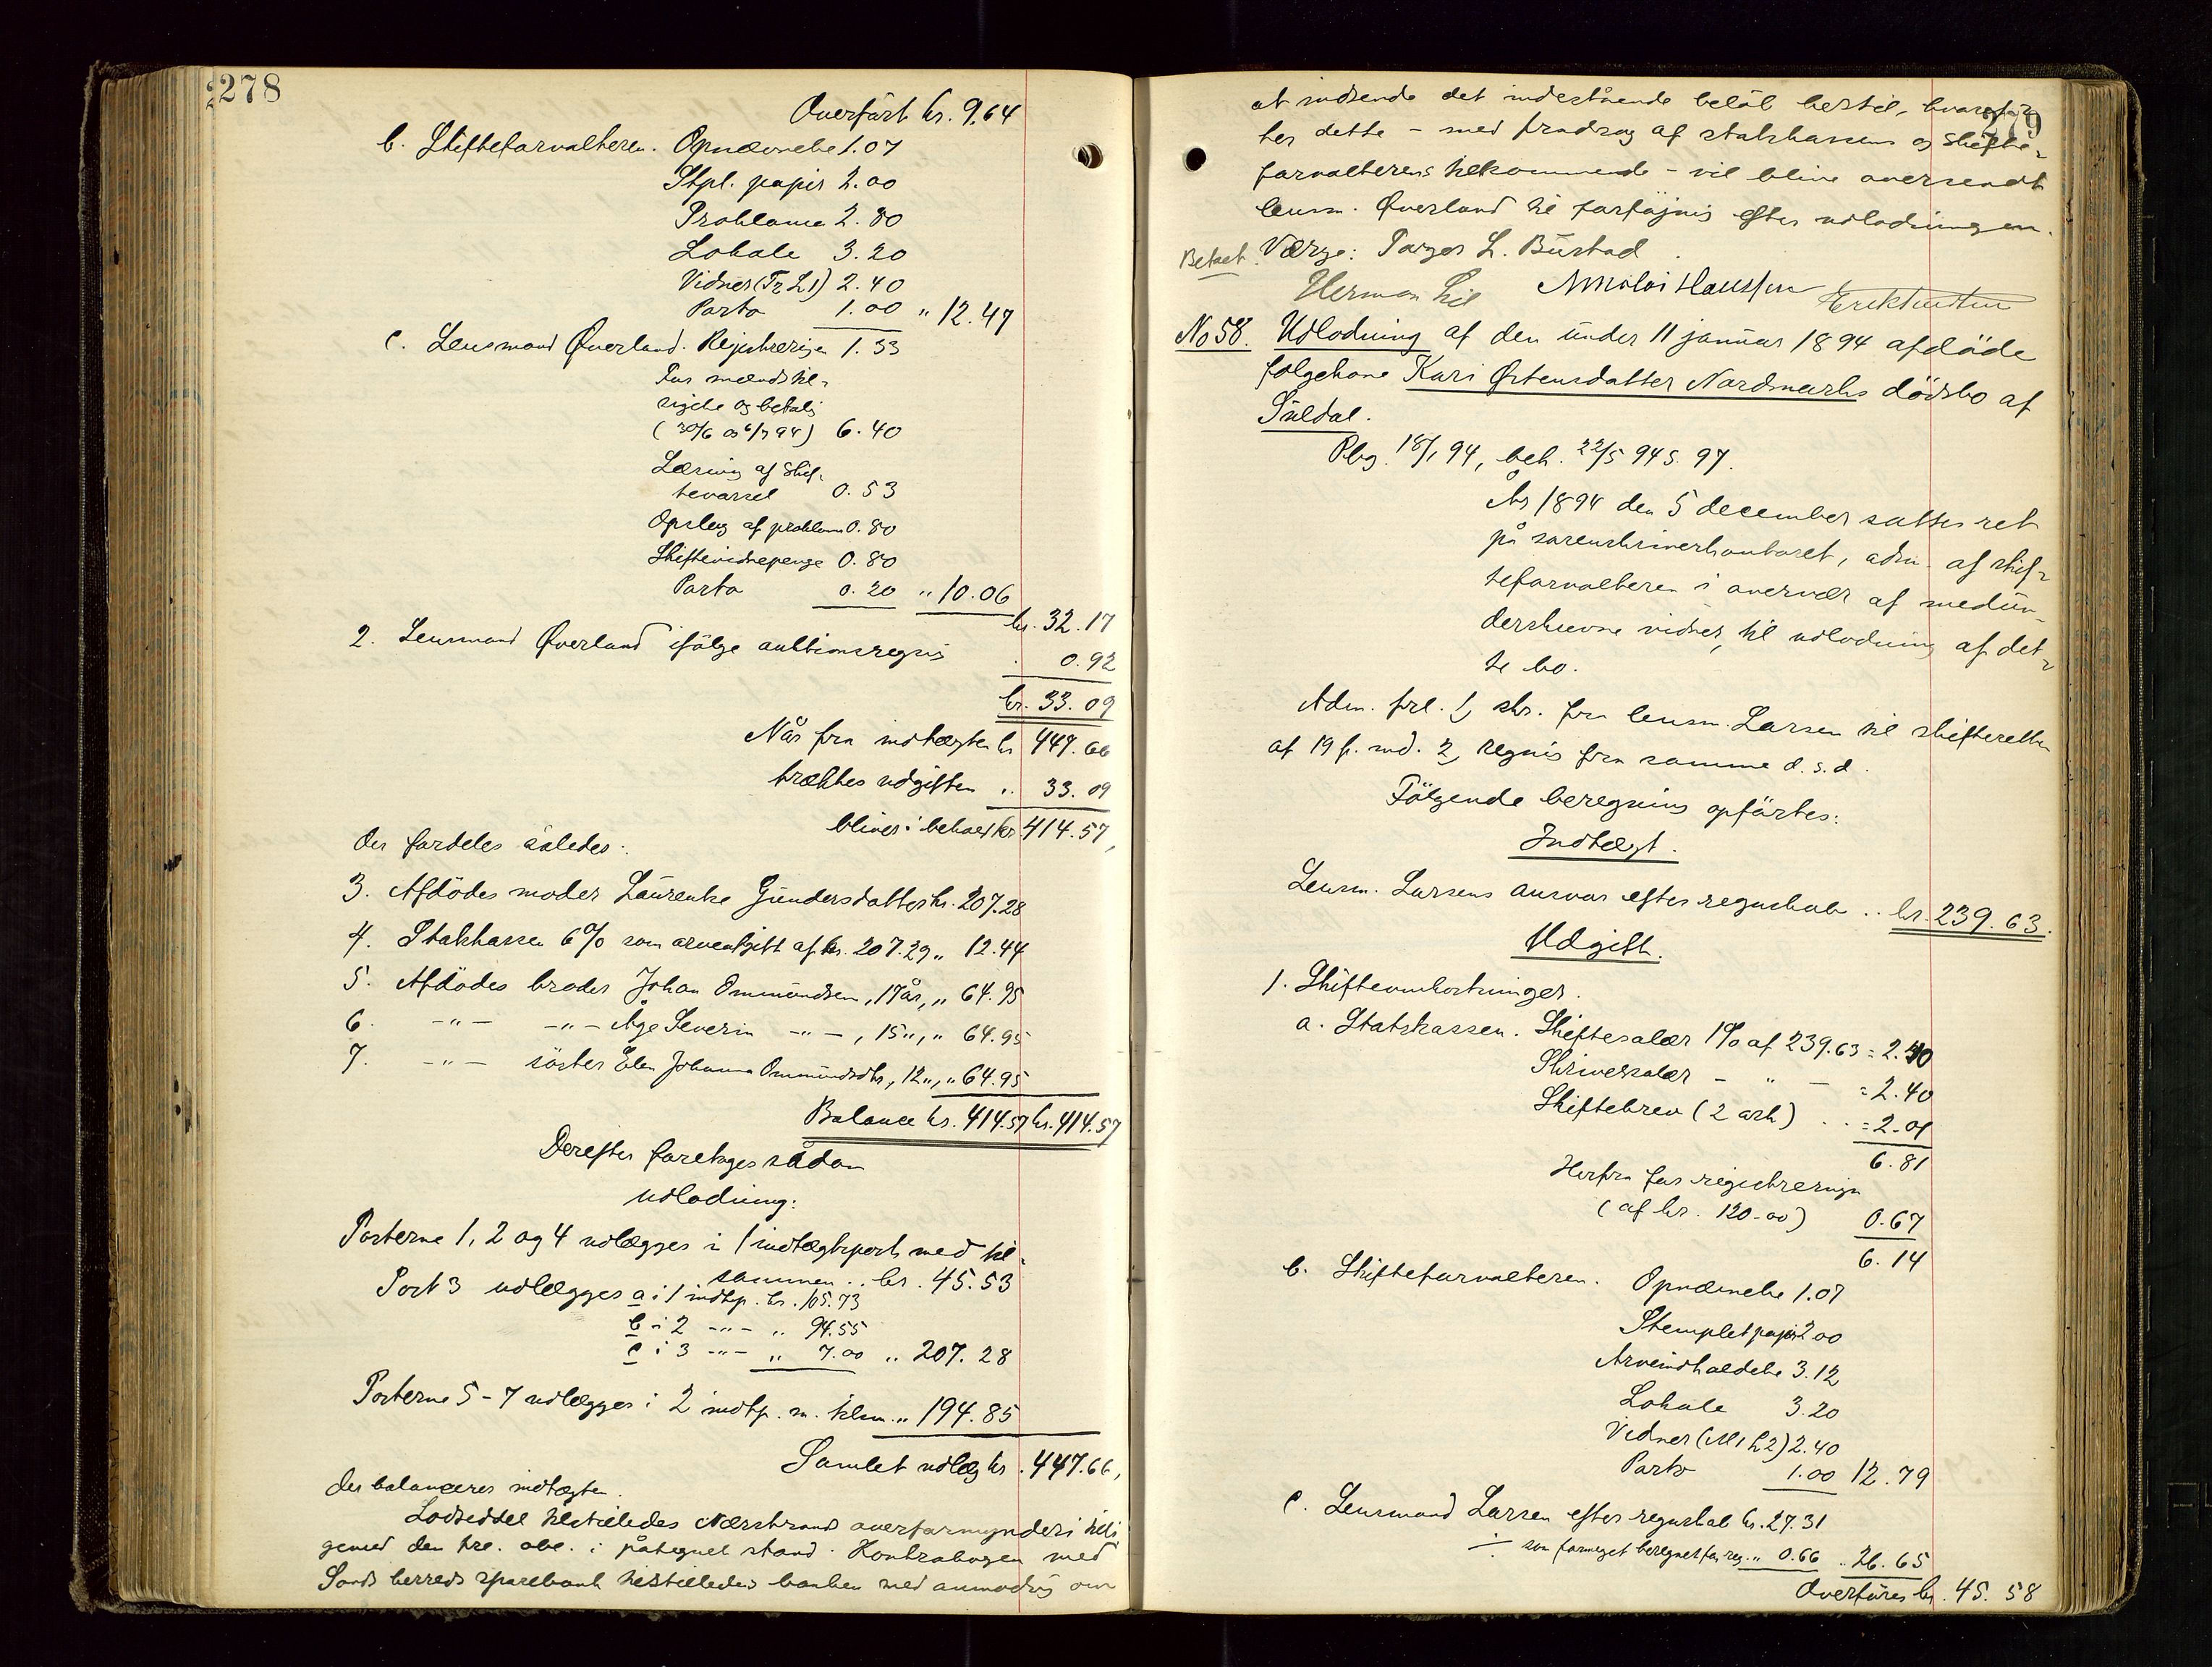 278
Overført kr. 9.64
b. Skifteforvalteren. Opnævnelse 1.07
Stpl. papir 2.00
Proklama 2.80
Lokale 3.20
Vidner (Tr L 1) 2.40
Porto 1.00 " 12.47
c. Lensmand Øverland. Registrering 1.33
For mænds til-
sigelse og betalg
(30/6 og 6/7 94) 6.40
Læsning af skif-
tevarsel 0.53
Opslag af proklama 0.80
Skiftevidnepenge 0.80
Porto 0.20 " 10.06
kr. 32.17
2. Lensmand Øverland ifølge auktionsregnsk 0.92
kr. 33.09
Når fra indtægten kr 447.66
trækkes udgiften " 33.09
bliver i behold kr. 414.57,
der fordeles således:
3. Afdødes moder Laurentse Gundersdatter kr. 207.28
4. Statskassen 6% som arveafgift af kr. 207.29 " 12.44
5. Afdødes broder Johan Ommundsen, 17 år, " 64.95
6. -"- -"- Åge Severin -"-, 15 ", " 64.95
7. -"- søster Elen Johanna Ommundsdtr, 12 ", " 64.95
Balance kr. 414.57 kr. 414.57
Derefter foretoges sådan
udlodning:
Posterne 1, 2 og 4 udlægges i 1 indtægtspost med til-
sammen .. kr. 45.53
Post 3 udlægges a i 1 indtp. kr. 105.73
b i 2 -"- " 94.55
c i 3 -"- " 7.00 " 207.28
Posterne 5-7 udlægges i 2 indtp. m. tilsm. " 194.85
Samlet udlæg kr. 447.66,
der balancerer indtægten.
Lodseddel tilstilledes Nærstrand overformynderi tilli-
gemed den tre. obl. i påtegnet stand. Kontrabogen med
Sands herreds sparebank tilstilledes banken med anmodng om
279
at indsende det indestående beløb hertil, hvoref-
ter dette - med fradrag af statskassens og skifte-
forvalterens tilkommende - vil blive oversendt
lensm. Øverland til forføjnig efter udlodningen.
Betalt. Værge: Torger L. Bustad.
Herman Lie Nikolai Hausken
No 58. Udlodning af den under 11 januar 1894 afdøde
folgekone Kari Østensdatter Nordmarks dødsbo af
Suldal.
Pbg. 18/1 94, beh. 22/5 94 s. 97.
År 1894 den 5 december sattes ret
på sorenskriverkontoret, adm. af skif-
teforvalteren i overvær af medun-
derskrevne vidner, til udlodning af det-
te bo.
Adm. frl. 1, skr. fra lensm. Larsen til skifteretten
af 19 f. md. 2, regnsk fra samme d. s. d.
Følgende beregning opførtes:
Indtægt.
Lensm. Larsens ansvar efter regnskab .. kr. 239.63.
Udgift.
1. Skifteomkostninger.
a. Statskassen. Skiftesalær 1% af 239.63 = 2.40
Skriversalær - " - = 2.40
Skiftebrev (2 ark) .. = 2.01
6.81
Herfra for registreringen
(af kr. 120.00) 0.67
6.14
b. Skifteforvalteren. Opnævnelse 1.07
Stemplet papir 2.00
Arveindkaldelse 3.12
Lokale 3.20
Vidner (M 1 L 2) 2.40
Porto 1.00 12.79
c. Lensmand Larsen efter regnskab kr. 27.31
÷ som formeget beregnet for reg. " 0.66 .. 26.65
Overføres kr. 45.58